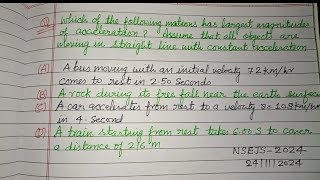 Q. Which of the following motions has largest magnitudes
of acceleration? Assume that all objects are
moving in straight line with constant acceleration
(A) A bus moving with an initial velocity 72 km/hr
comes to rest in 2.50 Seconds
(B) A rock during its free fall near the earth surface
(C) A car accelerates from rest to a velocity 108 km/hr
in 4. Second
(D) A train starting from rest takes 6.00 S to cover
a distance of 216 m
NSEJS-2024
24|11|2024